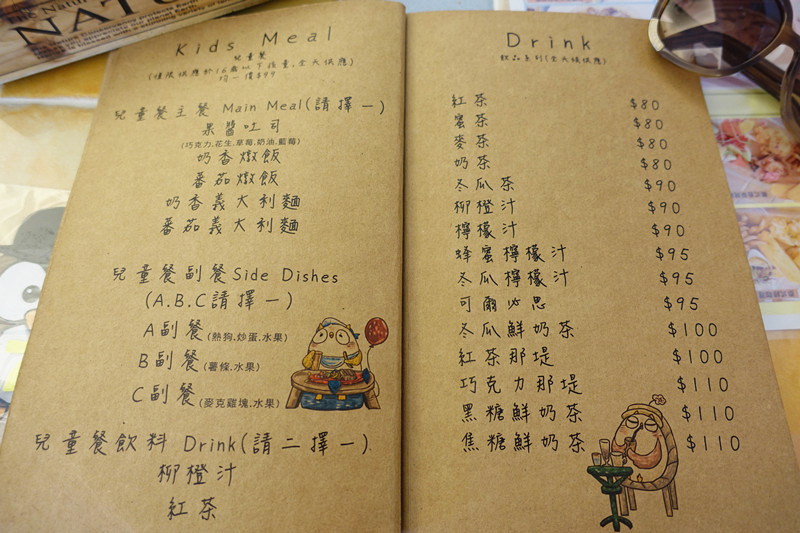 The Natur
NATU
Kids Meal
兒童餐
(僅限供應於16歲以下孩童,全天供應)
均一價$99
兒童餐主餐 Main Meal(請擇一)
果醬吐司
(巧克力.花生.草莓.奶油.藍莓)
奶香燉飯
蕃茄燉飯
奶香義大利麵
蕃茄義大利麵
兒童餐副餐Side Dishes
(A.B.C請擇一)
A副餐(熱狗.炒蛋.水果)
B副餐(薯條.水果)
C副餐(麥克雞塊.水果)
兒童餐飲料 Drink(請二擇一)
柳橙汁
紅茶
Drink
飲品系列(全天候供應)
紅茶 $80
蜜茶 $80
麥茶 $80
奶茶 $80
冬瓜茶 $90
柳橙汁 $90
檸檬汁 $90
蜂蜜檸檬汁 $95
冬瓜檸檬汁 $95
可爾必思 $95
冬瓜鮮奶茶 $100
紅茶那堤 $100
巧克力那堤 $110
黑糖鮮奶茶 $110
焦糖鮮奶茶 $110